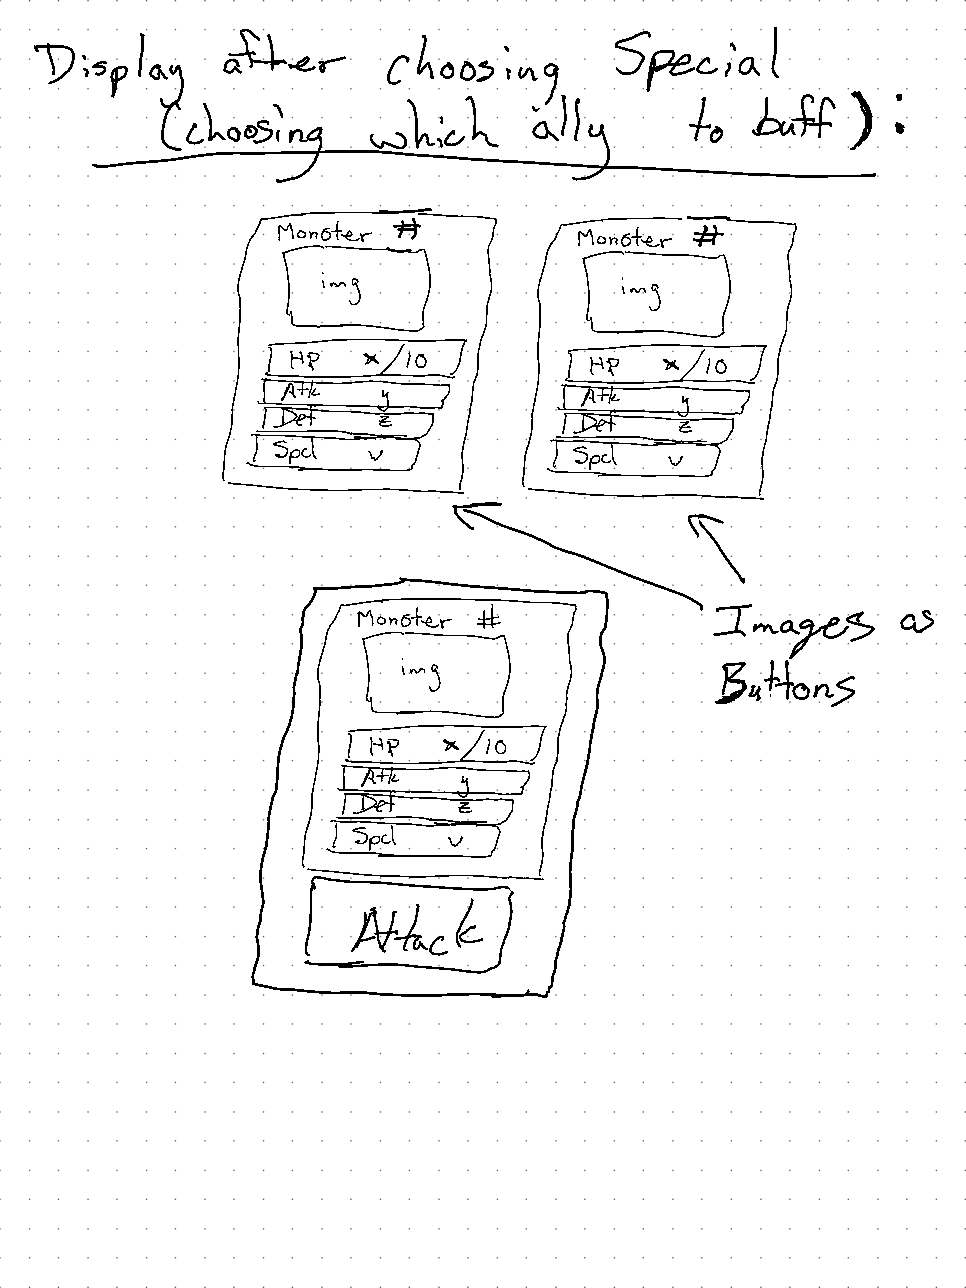 Display after choosing Special
(choosing which ally to buff):
Monster #
img
HP x/10
Atk y
Def z
Spcl v
Monster #
img
HP x/10
Atk y
Def z
Spcl v
Images as
Buttons
Monster #
img
HP x/10
Atk y
Def z
Spcl v
Attack